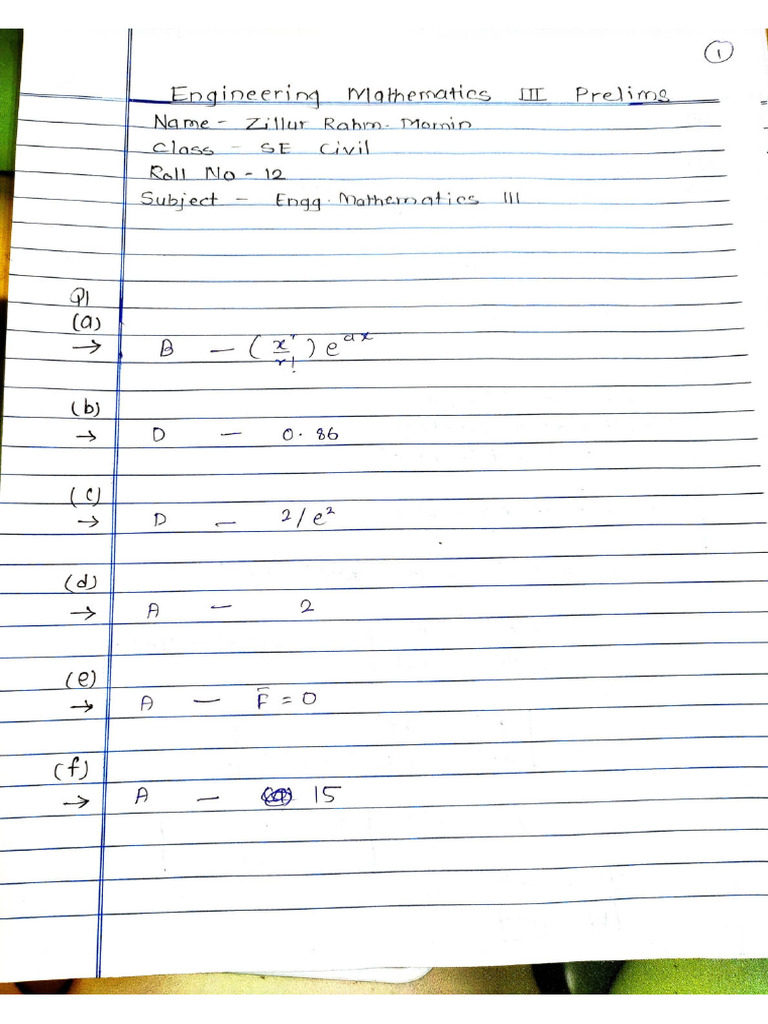 ①
Engineering Mathematics III Prelims
Name - Zillur Rahm. Momin
Class - SE Civil
Roll No - 12
Subject - Engg. Mathematics III
Q1
(a)
→ B — (x^r/r!) e^ax
(b)
→ D — 0.86
(c)
→ D — 2/e²
(d)
→ A — 2
(e)
→ A — F̄ = 0
(f)
→ A — 15